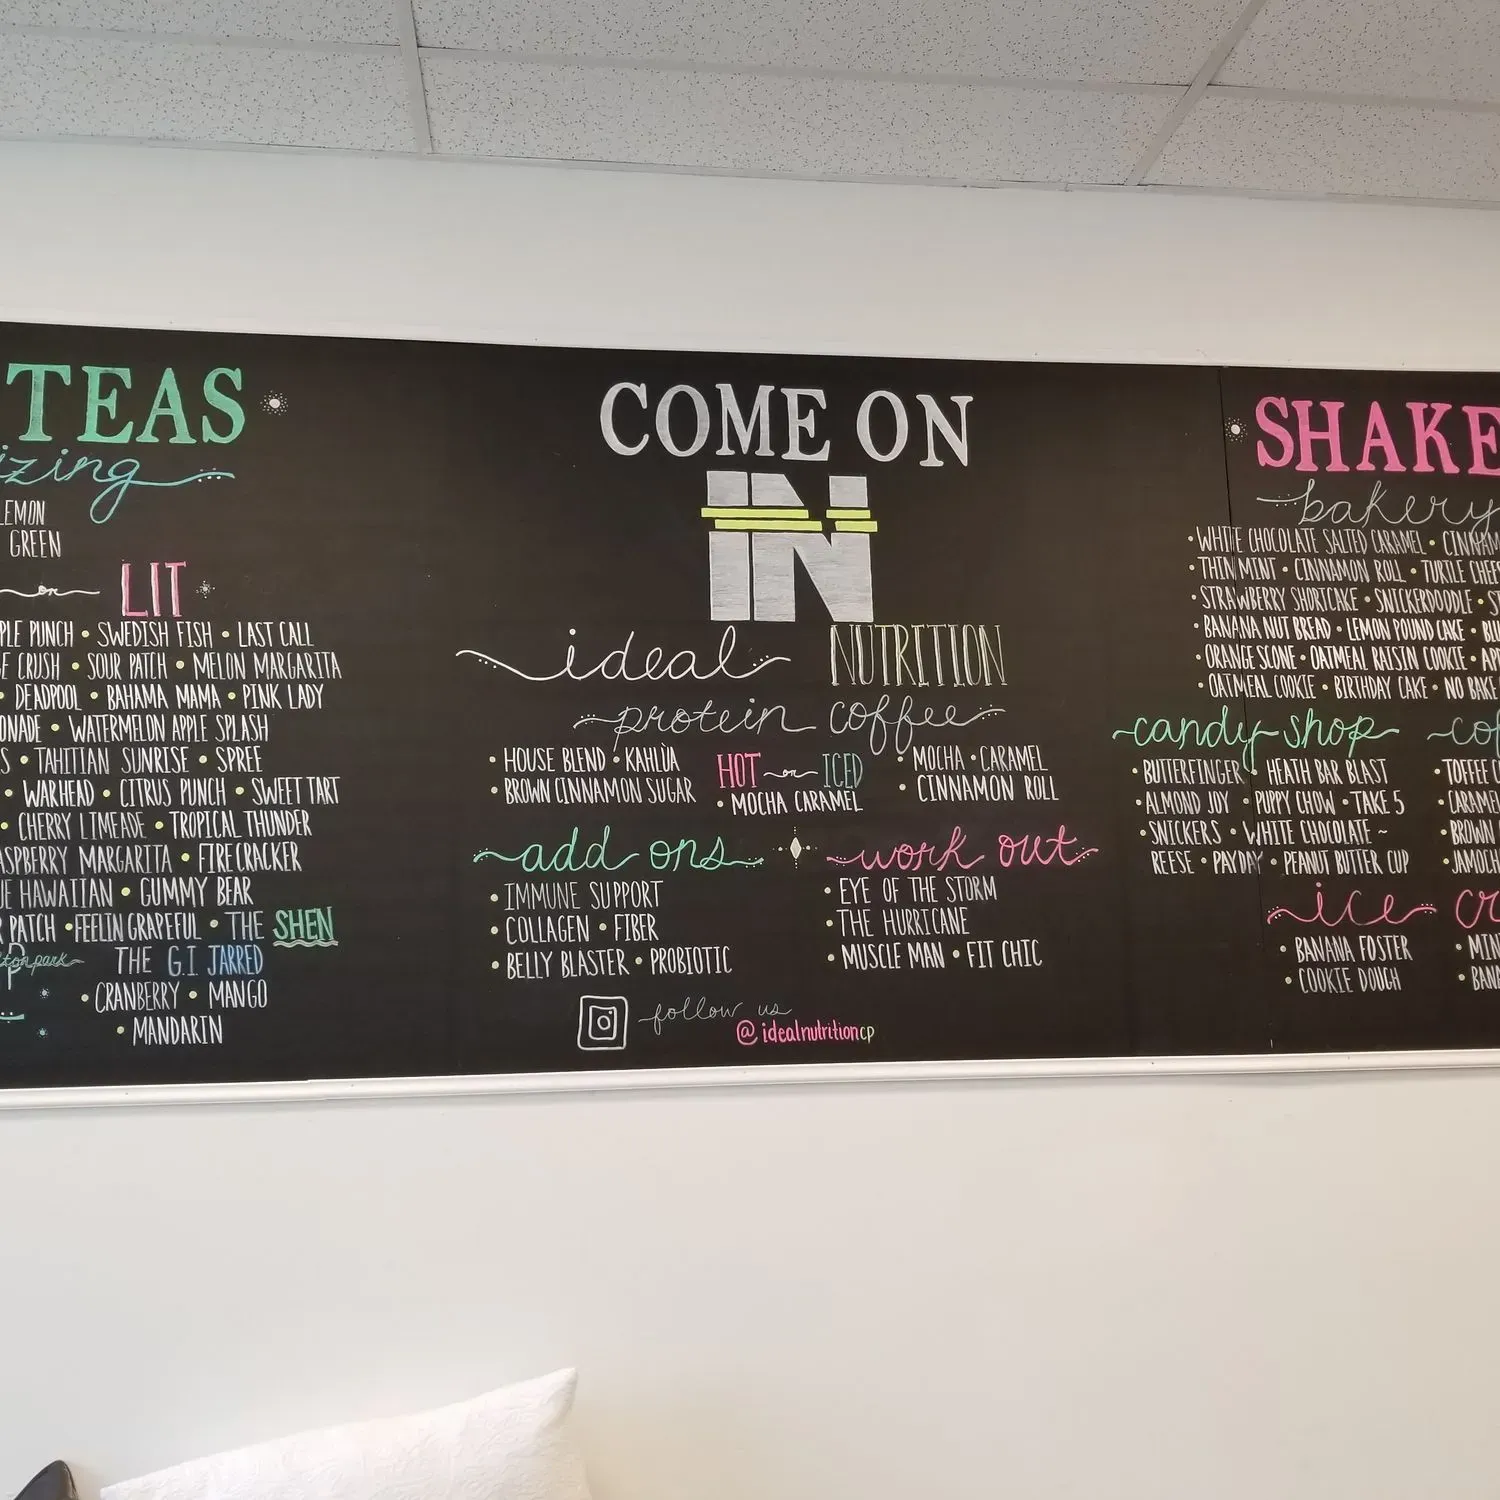 TEAS
izing
LEMON
GREEN
or LIT
PLE PUNCH • SWEDISH FISH • LAST CALL
E CRUSH • SOUR PATCH • MELON MARGARITA
• DEADPOOL • BAHAMA MAMA • PINK LADY
ONADE • WATERMELON APPLE SPLASH
S • TAHITIAN SUNRISE • SPREE
• WARHEAD • CITRUS PUNCH • SWEET TART
• CHERRY LIMEADE • TROPICAL THUNDER
ASPBERRY MARGARITA • FIRECRACKER
UE HAWAIIAN • GUMMY BEAR
R PATCH • FEELIN GRAPEFUL • THE SHEN
THE G.I. JARRED
• CRANBERRY • MANGO
• MANDARIN
COME ON
IN
ideal NUTRITION
protein coffee
• HOUSE BLEND • KAHLÙA
• BROWN CINNAMON SUGAR
HOT or ICED
• MOCHA CARAMEL
• MOCHA • CARAMEL
• CINNAMON ROLL
add ons
• IMMUNE SUPPORT
• COLLAGEN • FIBER
• BELLY BLASTER • PROBIOTIC
work out
• EYE OF THE STORM
• THE HURRICANE
• MUSCLE MAN • FIT CHIC
follow us
@idealnutritioncp
SHAKE
bakery
• WHITE CHOCOLATE SALTED CARAMEL • CINNAM
• THIN MINT • CINNAMON ROLL • TURTLE CHEES
• STRAWBERRY SHORTCAKE • SNICKERDOODLE • S
• BANANA NUT BREAD • LEMON POUND CAKE • BLU
• ORANGE SCONE • OATMEAL RAISIN COOKIE • APP
• OATMEAL COOKIE • BIRTHDAY CAKE • NO BAKE
candy shop
• BUTTERFINGER • HEATH BAR BLAST
• ALMOND JOY • PUPPY CHOW • TAKE 5
• SNICKERS • WHITE CHOCOLATE ~
REESE • PAYDAY • PEANUT BUTTER CUP
cof
• TOFFEE C
• CARAMEL
• BROWN
• JAMOCH
ice cr
• BANANA FOSTER
• COOKIE DOUGH
• MIN
• BANA